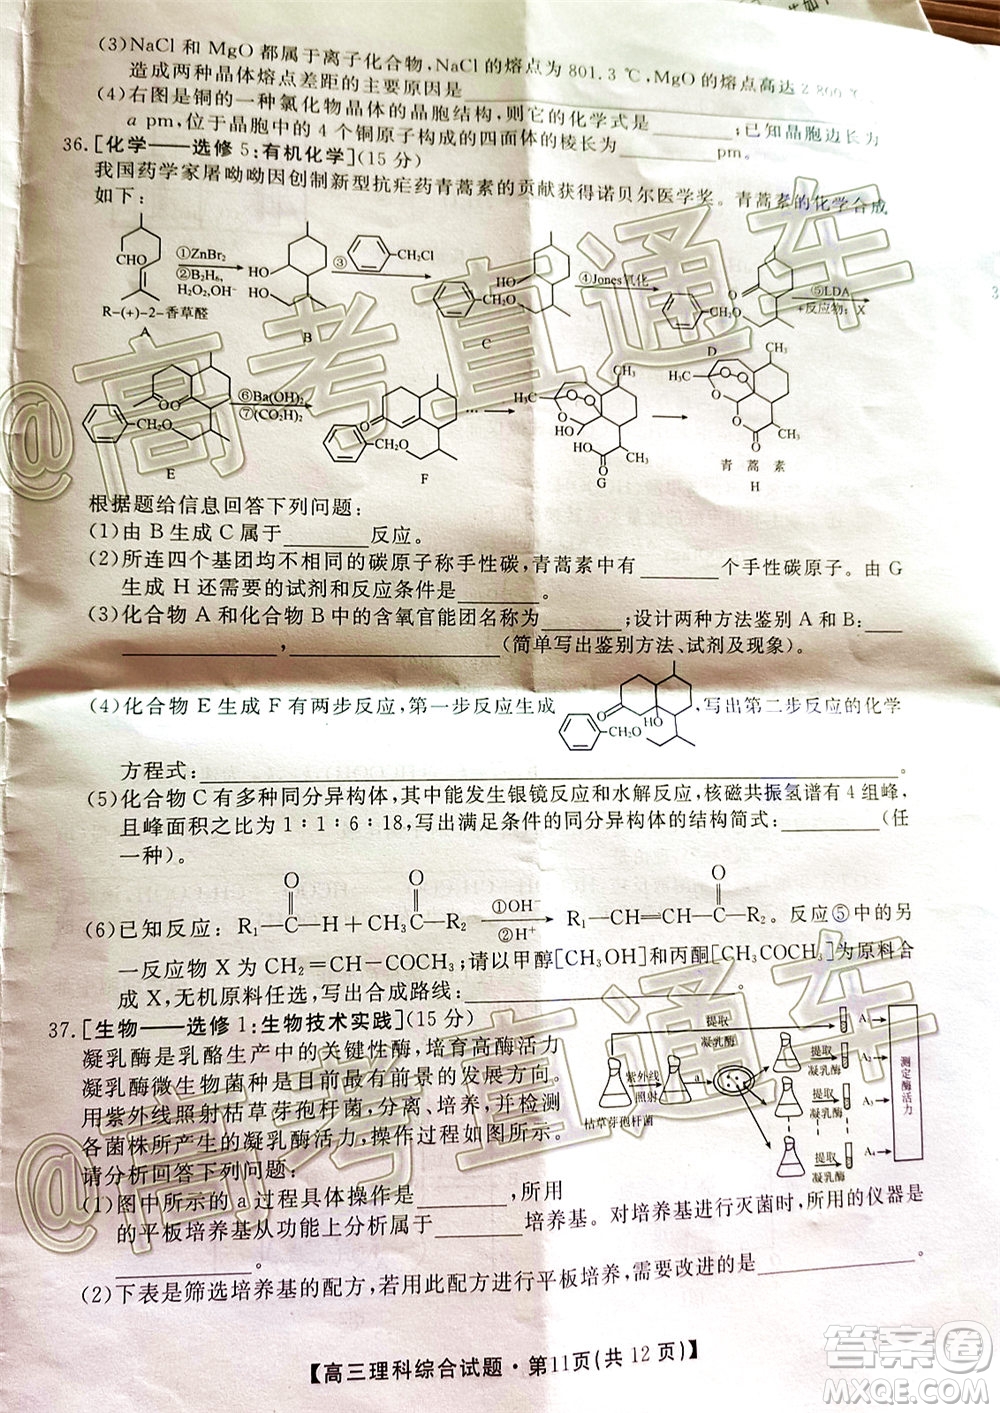 (3)NaCl 和 MgO 都属于离子化合物,NaCl 的熔点为 801.3 ℃,MgO 的熔点高达 2 800 ℃,
造成两种晶体熔点差距的主要原因是
(4)右图是铜的一种氯化物晶体的晶胞结构,则它的化学式是________;已知晶胞边长为
a pm,位于晶胞中的 4 个铜原子构成的四面体的棱长为________pm。
36.[化学——选修 5:有机化学](15 分)
我国药学家屠呦呦因创制新型抗疟药青蒿素的贡献获得诺贝尔医学奖。青蒿素的化学合成
如下:
CHO
R-(+)-2-香草醛
A
①ZnBr2
②B2H6,
H2O2,OH-
HO
HO
B
③
CH2Cl
HO
CH2O
C
④Jones氧化
O
CH2O
D
⑤LDA
+反应物:X
O
O
CH2O
E
⑥Ba(OH)2
⑦(CO2H)2
O
CH2O
F
...
CH3
H3C
O
O
HO
O
HO
CH3
O
G
CH3
H3C
O
O
O
O
CH3
O
青 蒿 素
H
根据题给信息回答下列问题:
(1)由 B 生成 C 属于________反应。
(2)所连四个基团均不相同的碳原子称手性碳,青蒿素中有________个手性碳原子。由 G
生成 H 还需要的试剂和反应条件是________。
(3)化合物 A 和化合物 B 中的含氧官能团名称为________;设计两种方法鉴别 A 和 B:____
________,________(简单写出鉴别方法、试剂及现象)。
(4)化合物 E 生成 F 有两步反应,第一步反应生成
O
HO
CH2O
,写出第二步反应的化学
方程式:________。
(5)化合物 C 有多种同分异构体,其中能发生银镜反应和水解反应,核磁共振氢谱有 4 组峰,
且峰面积之比为 1∶1∶6∶18,写出满足条件的同分异构体的结构简式:________(任
一种)。
(6)已知反应: R1—C(=O)—H+CH3C(=O)—R2 ①OH- ②H+ R1—CH=CH—C(=O)—R2。反应⑤中的另
一反应物 X 为 CH2=CH—COCH3;请以甲醇[CH3OH]和丙酮[CH3COCH3]为原料合
成 X,无机原料任选,写出合成路线:
37.[生物——选修 1:生物技术实践](15 分)
凝乳酶是乳酪生产中的关键性酶,培育高酶活力
凝乳酶微生物菌种是目前最有前景的发展方向。
用紫外线照射枯草芽孢杆菌,分离、培养,并检测
各菌株所产生的凝乳酶活力,操作过程如图所示。
请分析回答下列问题:
提取
凝乳酶
A1
紫外线
照射
a
枯草芽孢杆菌
提取
凝乳酶
A2
提取
凝乳酶
测定酶活力
(1)图中所示的 a 过程具体操作是________,所用
的平板培养基从功能上分析属于________培养基。对培养基进行灭菌时,所用的仪器是
________。
(2)下表是筛选培养基的配方,若用此配方进行平板培养,需要改进的是________。
【高三理科综合试题·第11页(共 12 页)】
@高考直通车
@高考直通车
答案圈
MXQE.COM